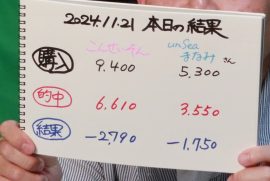 2024.11.21 本日の結果
こんせいそん unSea まなみさん
購入 9,400 5,300
的中 6,610 3,550
結果 -2,790 -1,750